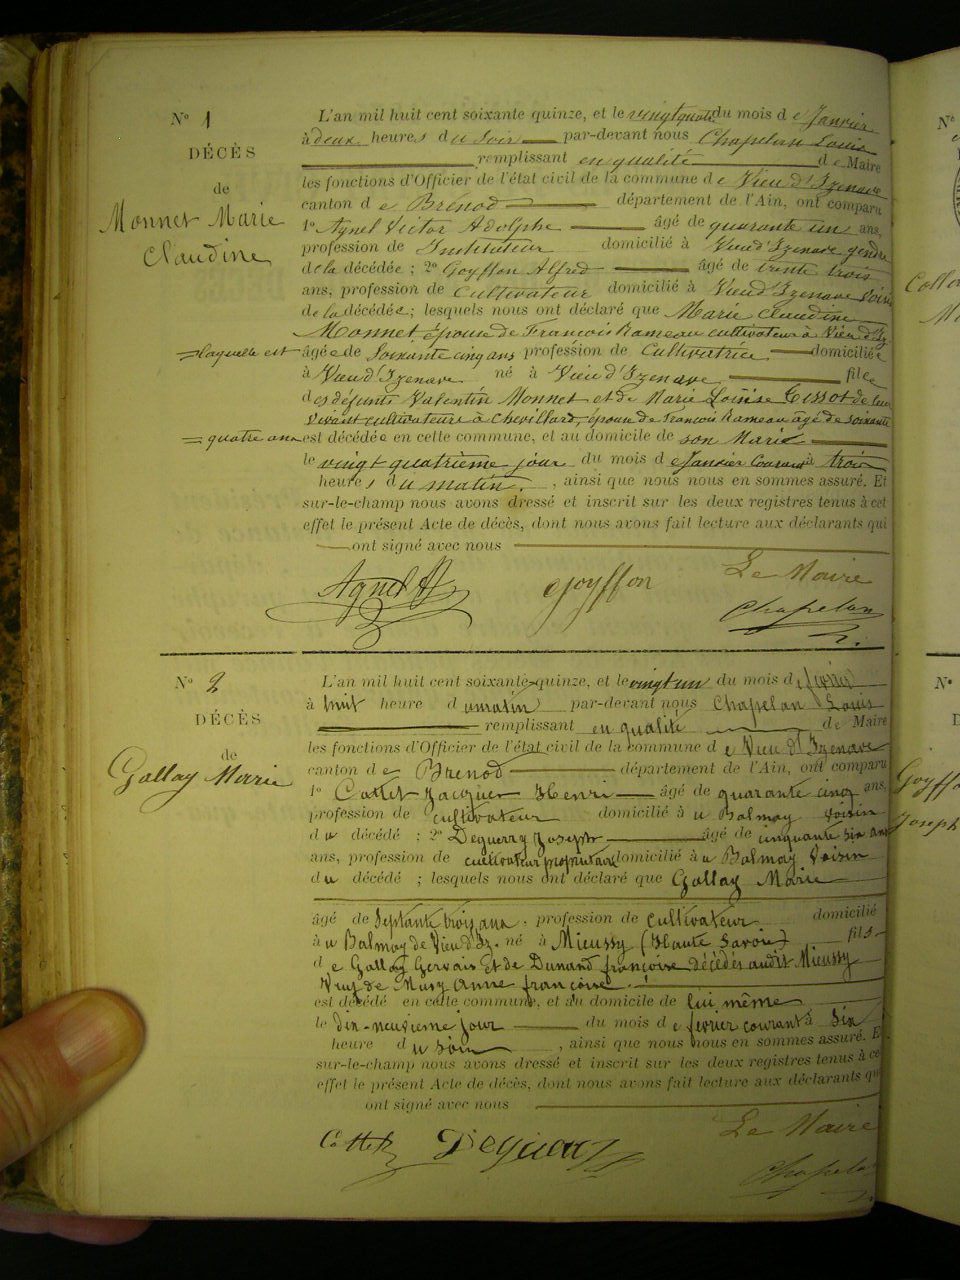 N° 1
DÉCÈS
de
Monnet Marie
Claudine
L'an mil huit cent soixante quinze, et le vingt quatre du mois de Janvier
à deux heures du Soir par-devant nous Chapelan Louis
remplissant en qualité de Maire
les fonctions d'Officier de l'état civil de la commune de Vieu d'Izenave
canton de Brénod département de l'Ain, ont comparu
1° Agnel Victor Adolphe âgé de quarante un ans,
profession de Instituteur domicilié à Vieu d'Izenave gendre
de la décédée ; 2° Goyffon Alfred âgé de trente trois
ans, profession de Cultivateur domicilié à Vieu d'Izenave Voisin
de la décédée ; lesquels nous ont déclaré que Marie Claudine
Monnet épouse de François Rameau cultivateur à Vieu d'Iz
=laquelle est âgée de Soixante cinq ans profession de Cultivatrice domiciliée
à Vieu d'Izenave né à Vieu d'Izenave fille
des défunts Valentin Monnet et de Marie Louise Tissot de leur
vivant cultivateurs à Chevillard, épouse de François Rameau âgé de soixante
=quatre ans est décédée en cette commune, et au domicile de son Marie
le vingt quatrième jour du mois de Janvier Courant à trois
heures du matin. , ainsi que nous nous en sommes assuré. Et
sur-le-champ nous avons dressé et inscrit sur les deux registres tenus à cet
effet le présent Acte de décès, dont nous avons fait lecture aux déclarants qui
ont signé avec nous
Agnel Goyffon Le Maire
Chapelan
N° 2
DÉCÈS
de
Gallay Marie
L'an mil huit cent soixante-quinze, et le vingt un du mois de février
à huit heure du matin par-devant nous Chapelan Louis
remplissant en qualité de Maire
les fonctions d'Officier de l'état civil de la commune de Vieu d'Izenave
canton de Brenod département de l'Ain, ont comparu
1° Cottet Jacques Henri âgé de quarante cinq ans,
profession de cultivateur domicilié à u Balmay voisin
du décédé ; 2° Deguerry Joseph âgé de cinquante six ans
ans, profession de cultivateur propriétaire domicilié à u Balmay Voisin
du décédé ; lesquels nous ont déclaré que Gallay Marie
âgé de Septante trois ans. profession de cultivateur domicilié
à u Balmay de Vieu d'Iz. né à Mieussy (Haute Savoie) fils
de Gallay Gervais Et de Dunand françoise décédés audit Mieussy
Veuf de Musy Anne françoise.
est décédé en cette commune, et au domicile de lui même
le dix-neuvieme jour du mois de fevrier courant à Six
heure du soir , ainsi que nous nous en sommes assuré. E
sur-le-champ nous avons dressé et inscrit sur les deux registres tenus à ce
effet le présent Acte de décès, dont nous avons fait lecture aux déclarants qu
ont signé avec nous
Cottet Deguerry Le Maire
Chapelan